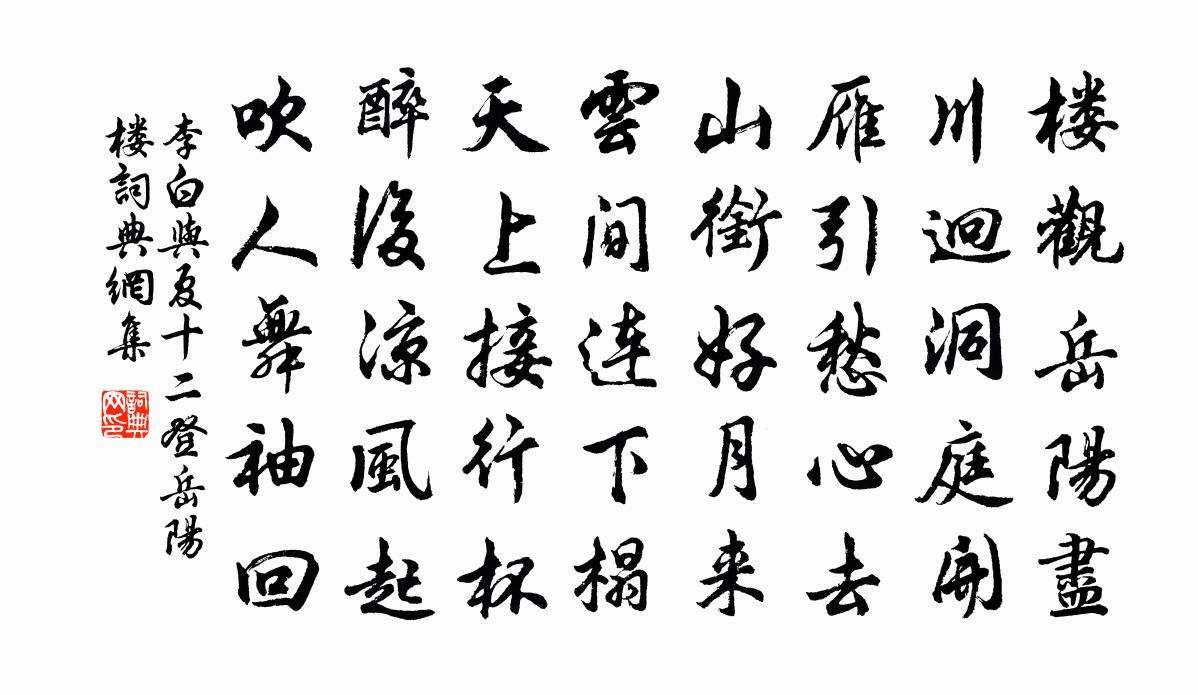 楼觀岳陽盡
川迥洞庭開
雁引愁心去
山銜好月来
雲間连下榻
天上接行杯
醉後涼風起
吹人舞袖回
李白與夏十二登岳陽
楼詞典網集
詞典
网印